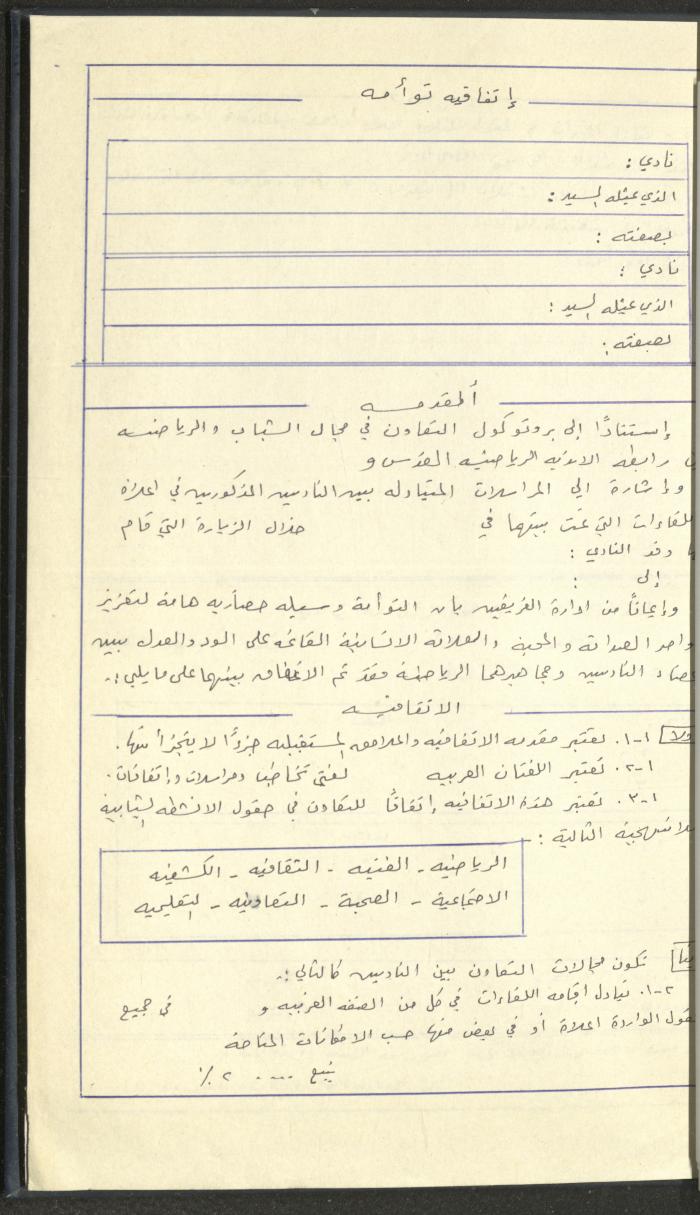 إتفاقيه توأمه
نادي :
الذي يمثله السيد :
بصفته :
نادي :
الذي يمثله السيد :
بصفته :
ألمقدمه
إستنادًا إلى بروتوكول التعاون في مجال الشباب والرياضه
رابطه الانديه الرياضيه القدس و
وإشارة الى المراسلات المتبادله بين الناديين المذكورين في اعلاه
للقاءات التي تمت بينهما في خلال الزيارة التي قام
وفد النادي :
إلى :
وإيماناً من ادارة الفريقين بان التوأمة وسيله حضاريه هامة لتعزيز
واصر الصداقة والمحبة والعلاقة الانسانية القائمه على الود والعدل بين
عضاء الناديين وجماهيرهما الرياضية فقد تم الاتفاق بينهما على ما يلي :-
الاتفاقيه
ولا ١-١. تعتبر مقدمه الاتفاقيه والملاحق المستقبليه جزءًا لا يتجزأ منها.
١-٢. تعتبر اللغتان العربيه لغتي تخاطب ومراسلات وإتفاقات.
١-٣. تعتبر هذه الاتفاقيه إتفاقاً للتعاون في حقول الانشطه الشبابية
التالية :
الرياضيه - الفنيه - الثقافيه - الكشفيه
الاجتماعية - الصحية - التعاونيه - التعليميه
نيا تكون مجالات التعاون بين الناديين كالتالي :-
٢-١. تبادل اقامه اللقاءات في كل من الضفه الغربيه و في جميع
قول الواردة اعلاة أو في بعض منها حسب الامكانات المتاحة
يتبع .... ٢٪